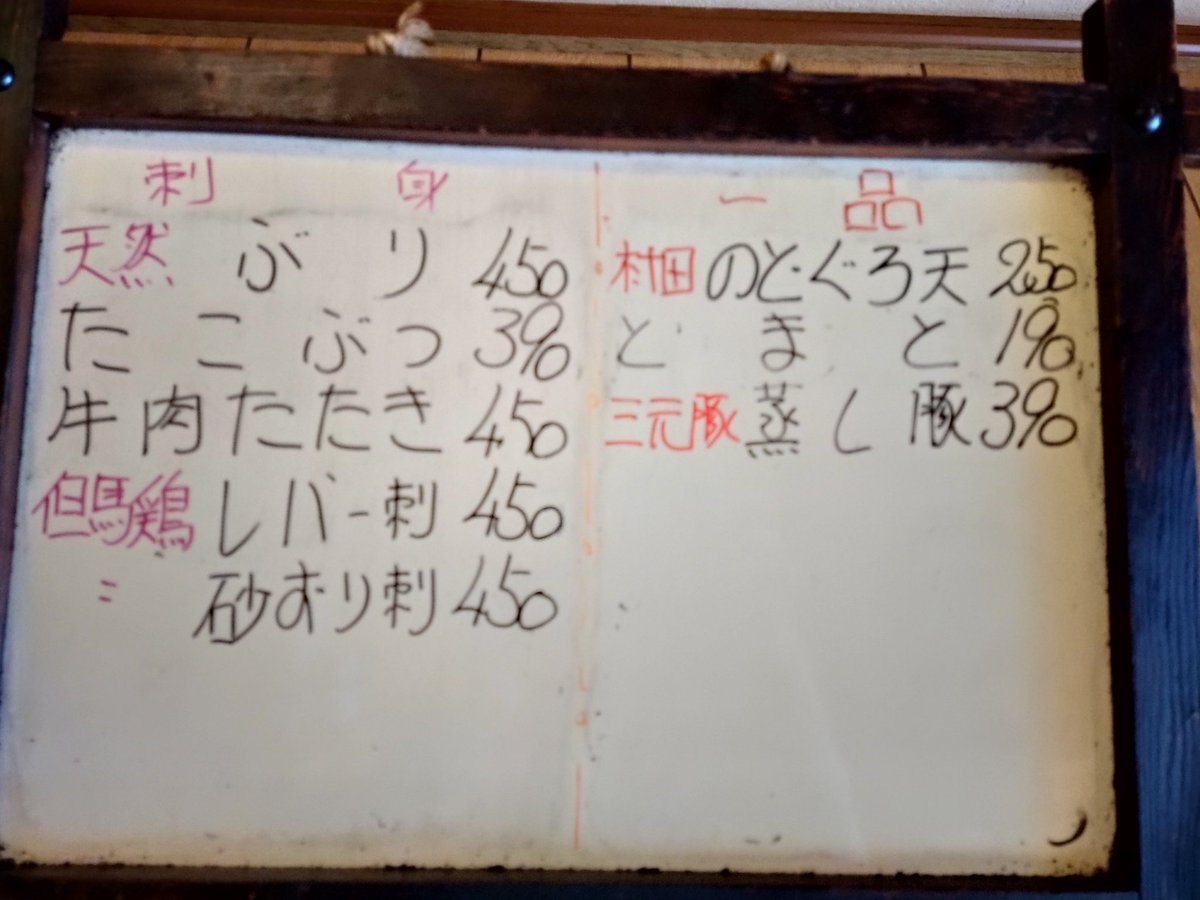 刺身
天然 ぶり 450
たこぶつ 390
牛肉たたき 450
但馬鶏 レバー刺 450
〃 砂ずり刺 450
一品
村田 のどぐろ天 250
とまと 190
三元豚 蒸し豚 390